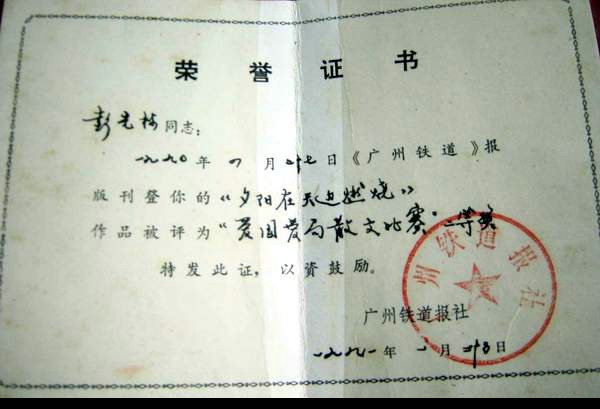 荣誉证书
彭光梅同志：
一九九〇年 月廿七日《广州铁道》报
版刊登你的《夕阳在天边燃烧》
作品被评为“爱国爱局散文比赛”二等奖
特发此证，以资鼓励。
广州铁道报社
一九九一年 月 日
广州铁道报社